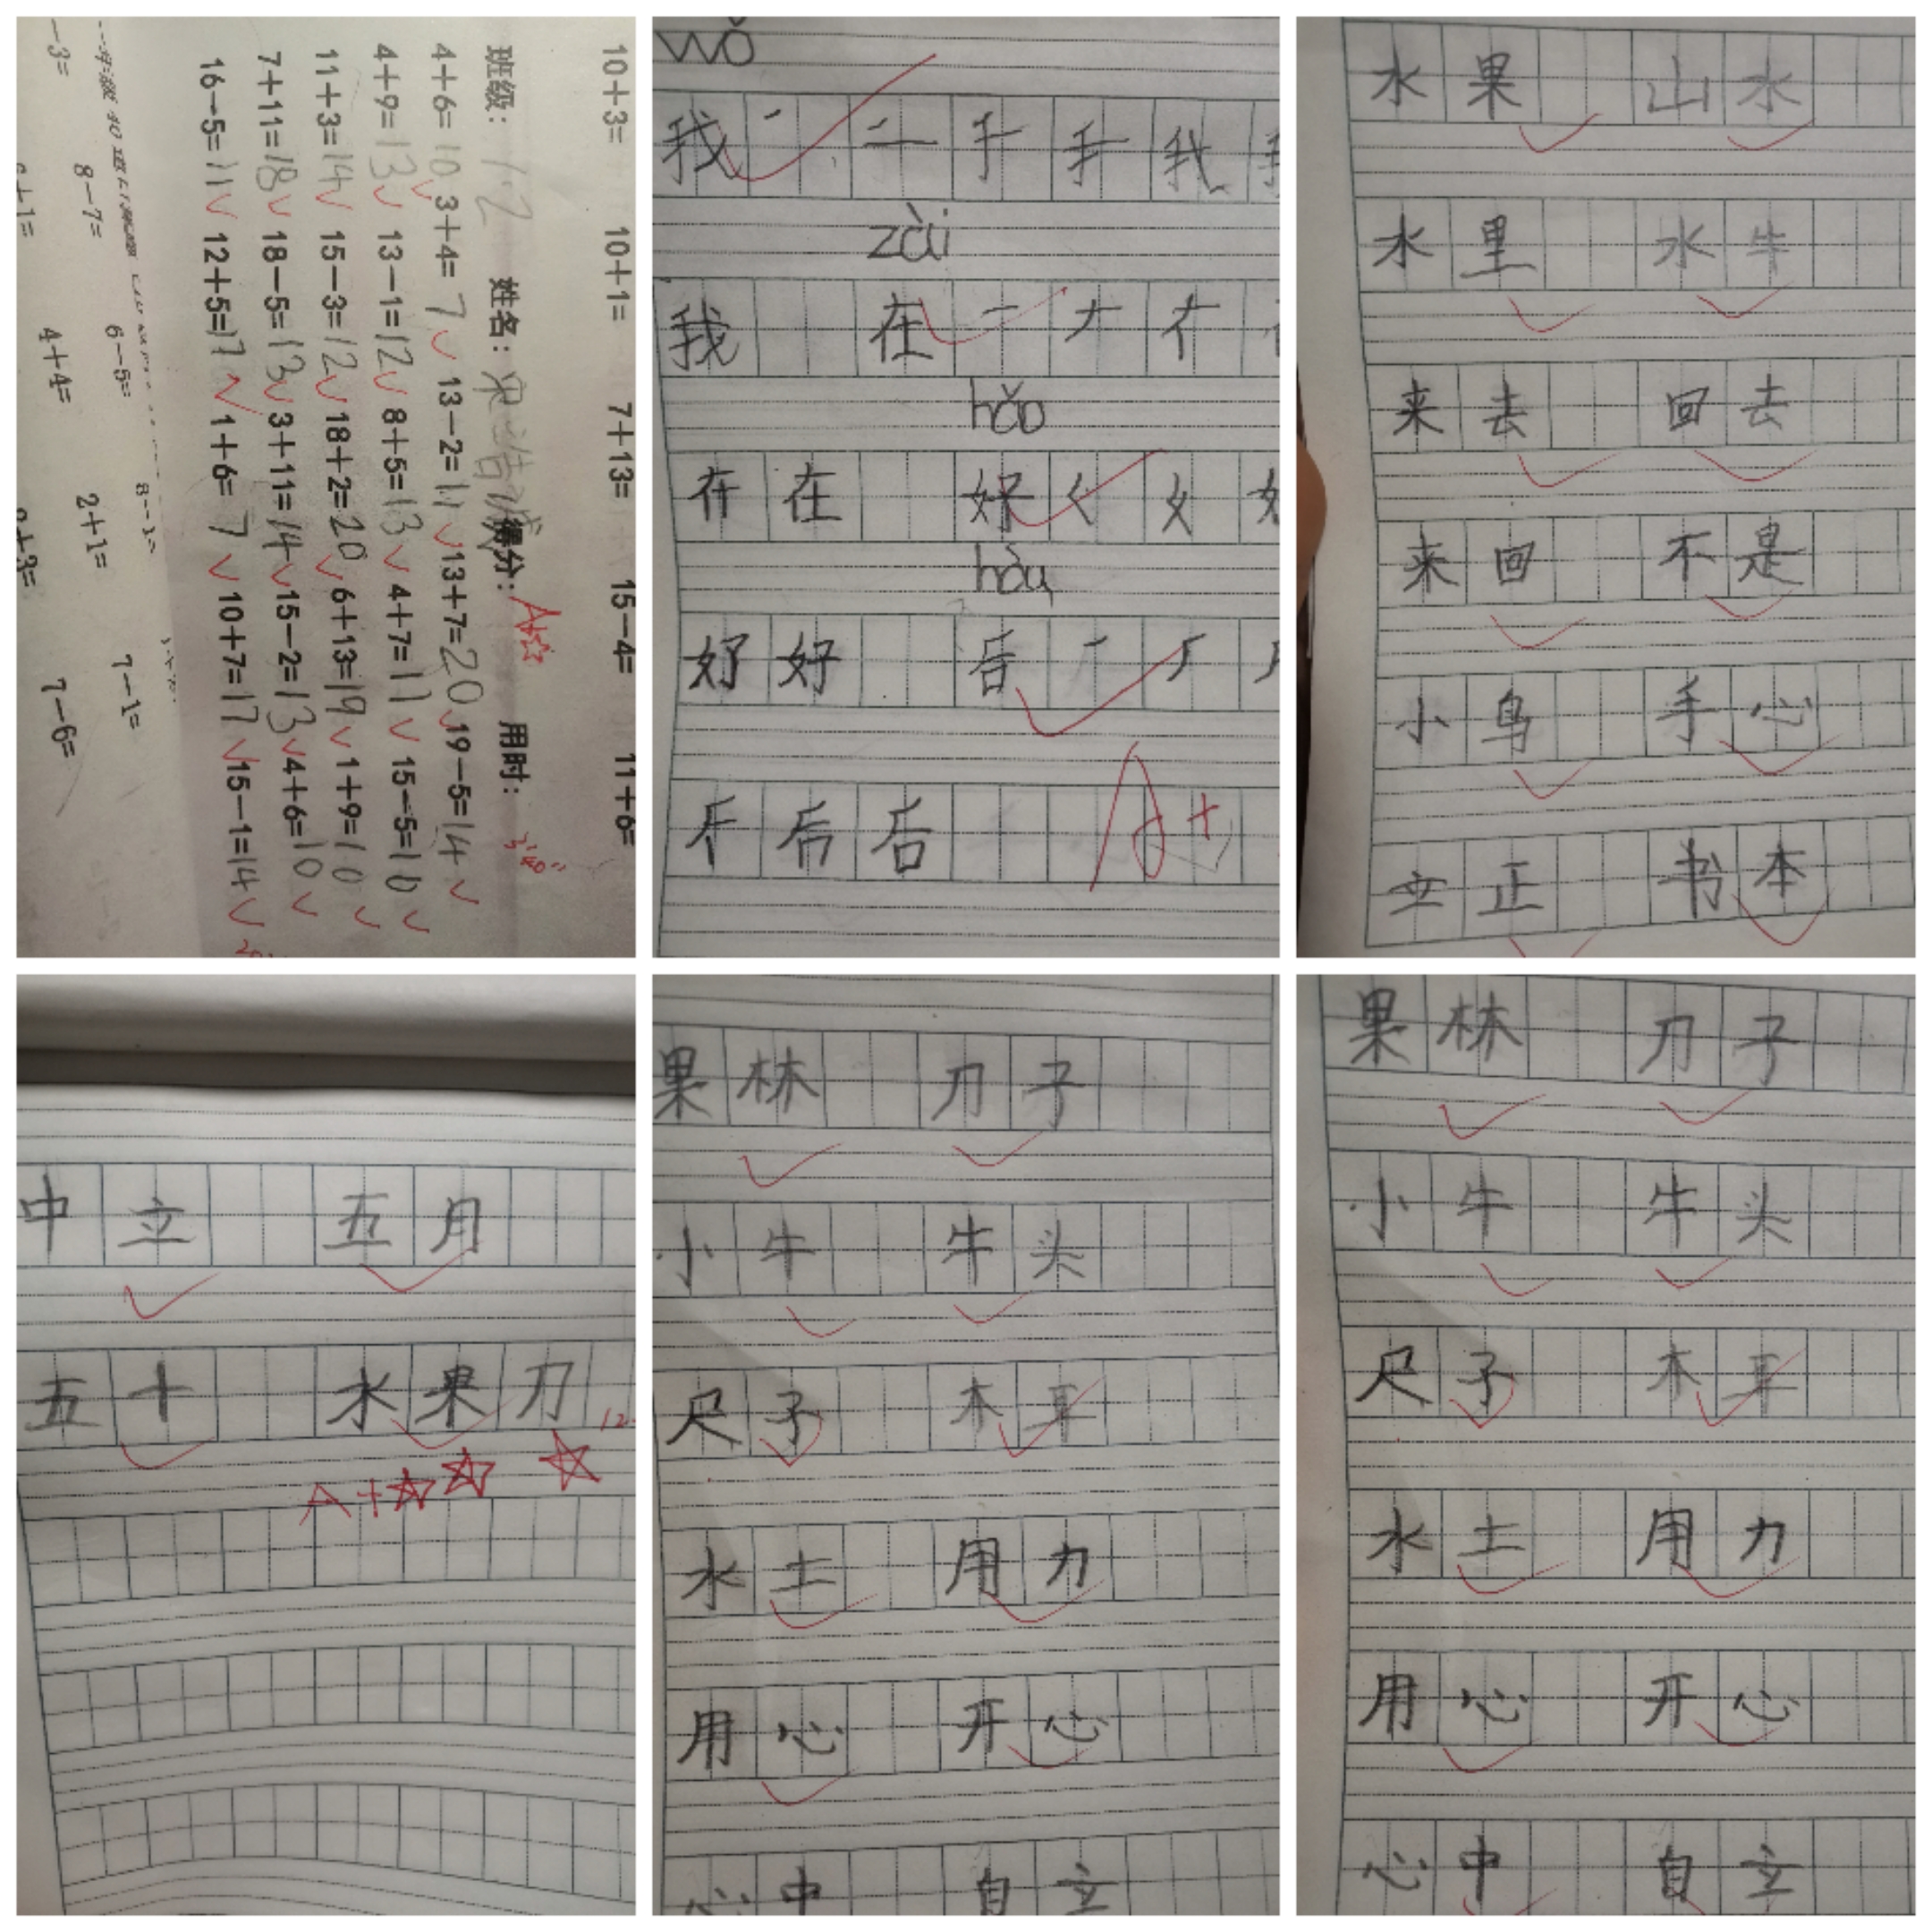 10+3= 10+1= 7+13= 15-4= 11+6=
班级: 1.2 姓名: 得分: A+ 用时: 3'40"
4+6=10 3+4=7 13-2=11 13+7=20 19-5=14
4+9=13 13-1=12 8+5=13 4+7=11 15-5=10
11+3=14 15-3=12 18+2=20 6+13=19 1+9=10
7+11=18 18-5=13 3+11=14 15-2=13 4+6=10
16-5=11 12+5=17 1+6=7 10+7=17 15-1=14
8-7= 6-5= 7-1=
-3= 4+4= 2+1= 7-6=
wǒ
我
zài
我 在
hǎo
在 好
hòu
好 好 后
后 A+
水果 山水
水里 水牛
来去 回去
来回 不是
小鸟 手心
立正 书本
中立 五月
五十 水果刀
A+
果林 刀子
小牛 牛头
尺子 木耳
水土 用力
用心 开心
心中 自立
果林 刀子
小牛 牛头
尺子 木耳
水土 用力
用心 开心
心中 自立